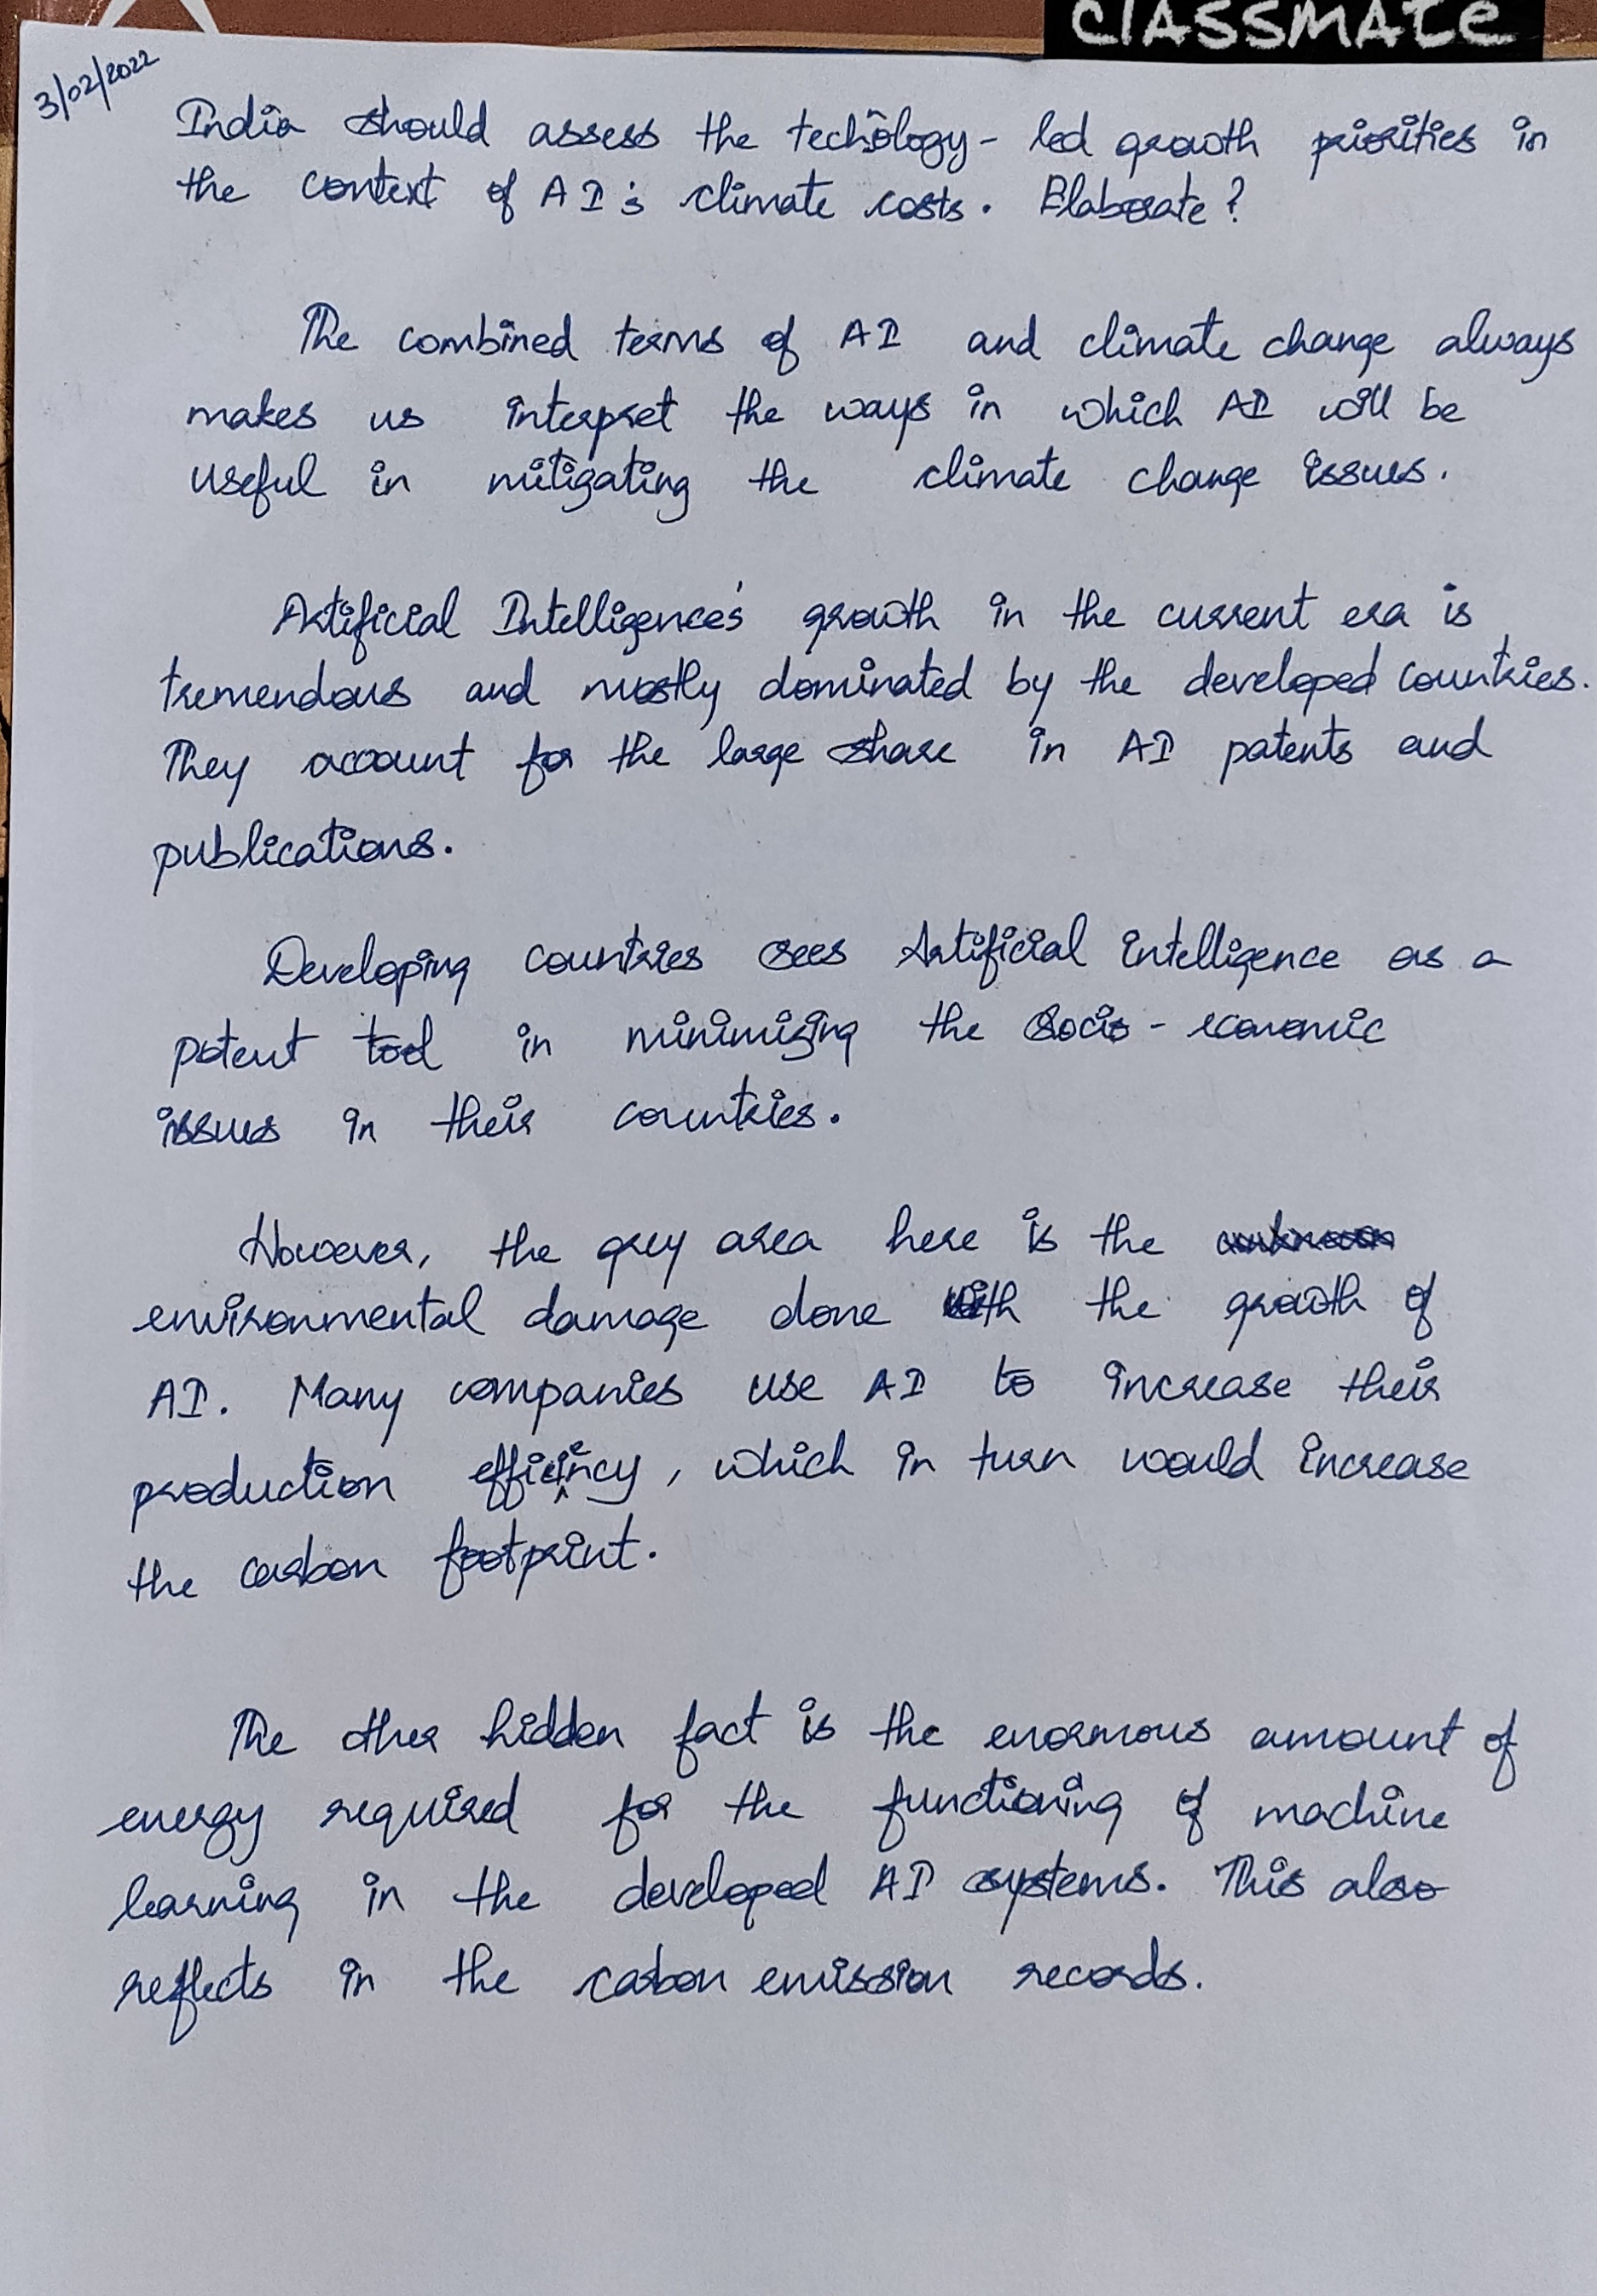 CLASSMATE
3/02/2022
India should assess the techology - led growth priorities in
the context of AI's climate costs. Elaborate?
The combined terms of AI and climate change always
makes us interpret the ways in which AI will be
useful in mitigating the climate change issues.
Artificial Intelligence's growth in the current era is
tremendous and mostly dominated by the developed countries.
They account for the large share in AI patents and
publications.
Developing countries sees Artificial intelligence as a
potent tool in minimizing the socio - economic
issues in their countries.
However, the grey area here is the
environmental damage done with the growth of
AI. Many companies use AI to increase their
production efficiency, which in turn would increase
the carbon footprint.
The other hidden fact is the enormous amount of
energy required for the functioning of machine
learning in the developed AI systems. This also
reflects in the carbon emission records.